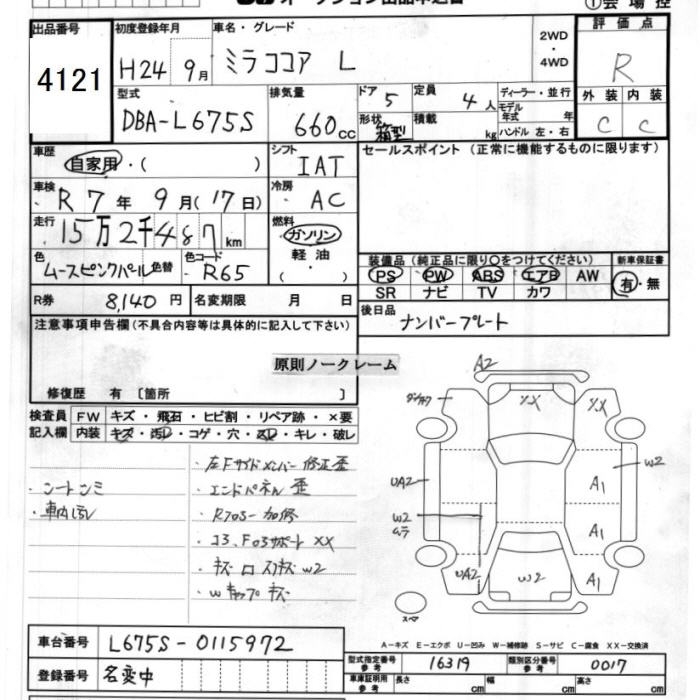 オークション出品申込書
①会場控
出品番号 初度登録年月 車名・グレード 評価点
4121 H24 9月 ミラココア L 2WD・4WD R
型式 排気量 ドア 定員 ディーラー・並行 外装 内装
DBA-L675S 660cc 5 4人 モデル年式 年 C C
形状 箱型 積載 kg ハンドル 左・右
車歴 自家用・( ) シフト IAT セールスポイント (正常に機能するものに限ります)
車検 R7年 9月(17日) 冷房 AC
走行 15万2千487km 燃料 ガソリン
色 ムースピンクパール 色替 色コード R65 軽油・( )
装備品 (純正品に限り○をつけてください) 新車保証書
PS PW ABS エアB AW 有・無
SR ナビ TV カワ
R券 8,140円 名変期限 月 日 後日品 ナンバープレート
注意事項申告欄(不具合内容等は具体的に記入して下さい)
原則ノークレーム
修復歴 有 〔箇所 〕
検査員 FW キズ・飛石・ヒビ割・リペア跡・×要
記入欄 内装 キズ・汚レ・コゲ・穴・スレ・キレ・破レ
・左Fサイドメンバー 修正歪
・シートシミ ・エンドパネル 歪
・車内汚レ
・コブ、Fロアサポート XX
A2
XX XX
W2
UA2 A1
W2 A1
UA2 W2 A1
スペア
A-キズ E-エクボ U-凹み W-補修跡 S-サビ C-腐食 XX-交換済
車台番号 L675S-0115972
型式指定番号参考 16319 類別区分番号参考 0017
登録番号 名変中
車庫証明用参考 長さ cm 幅 cm 高さ cm